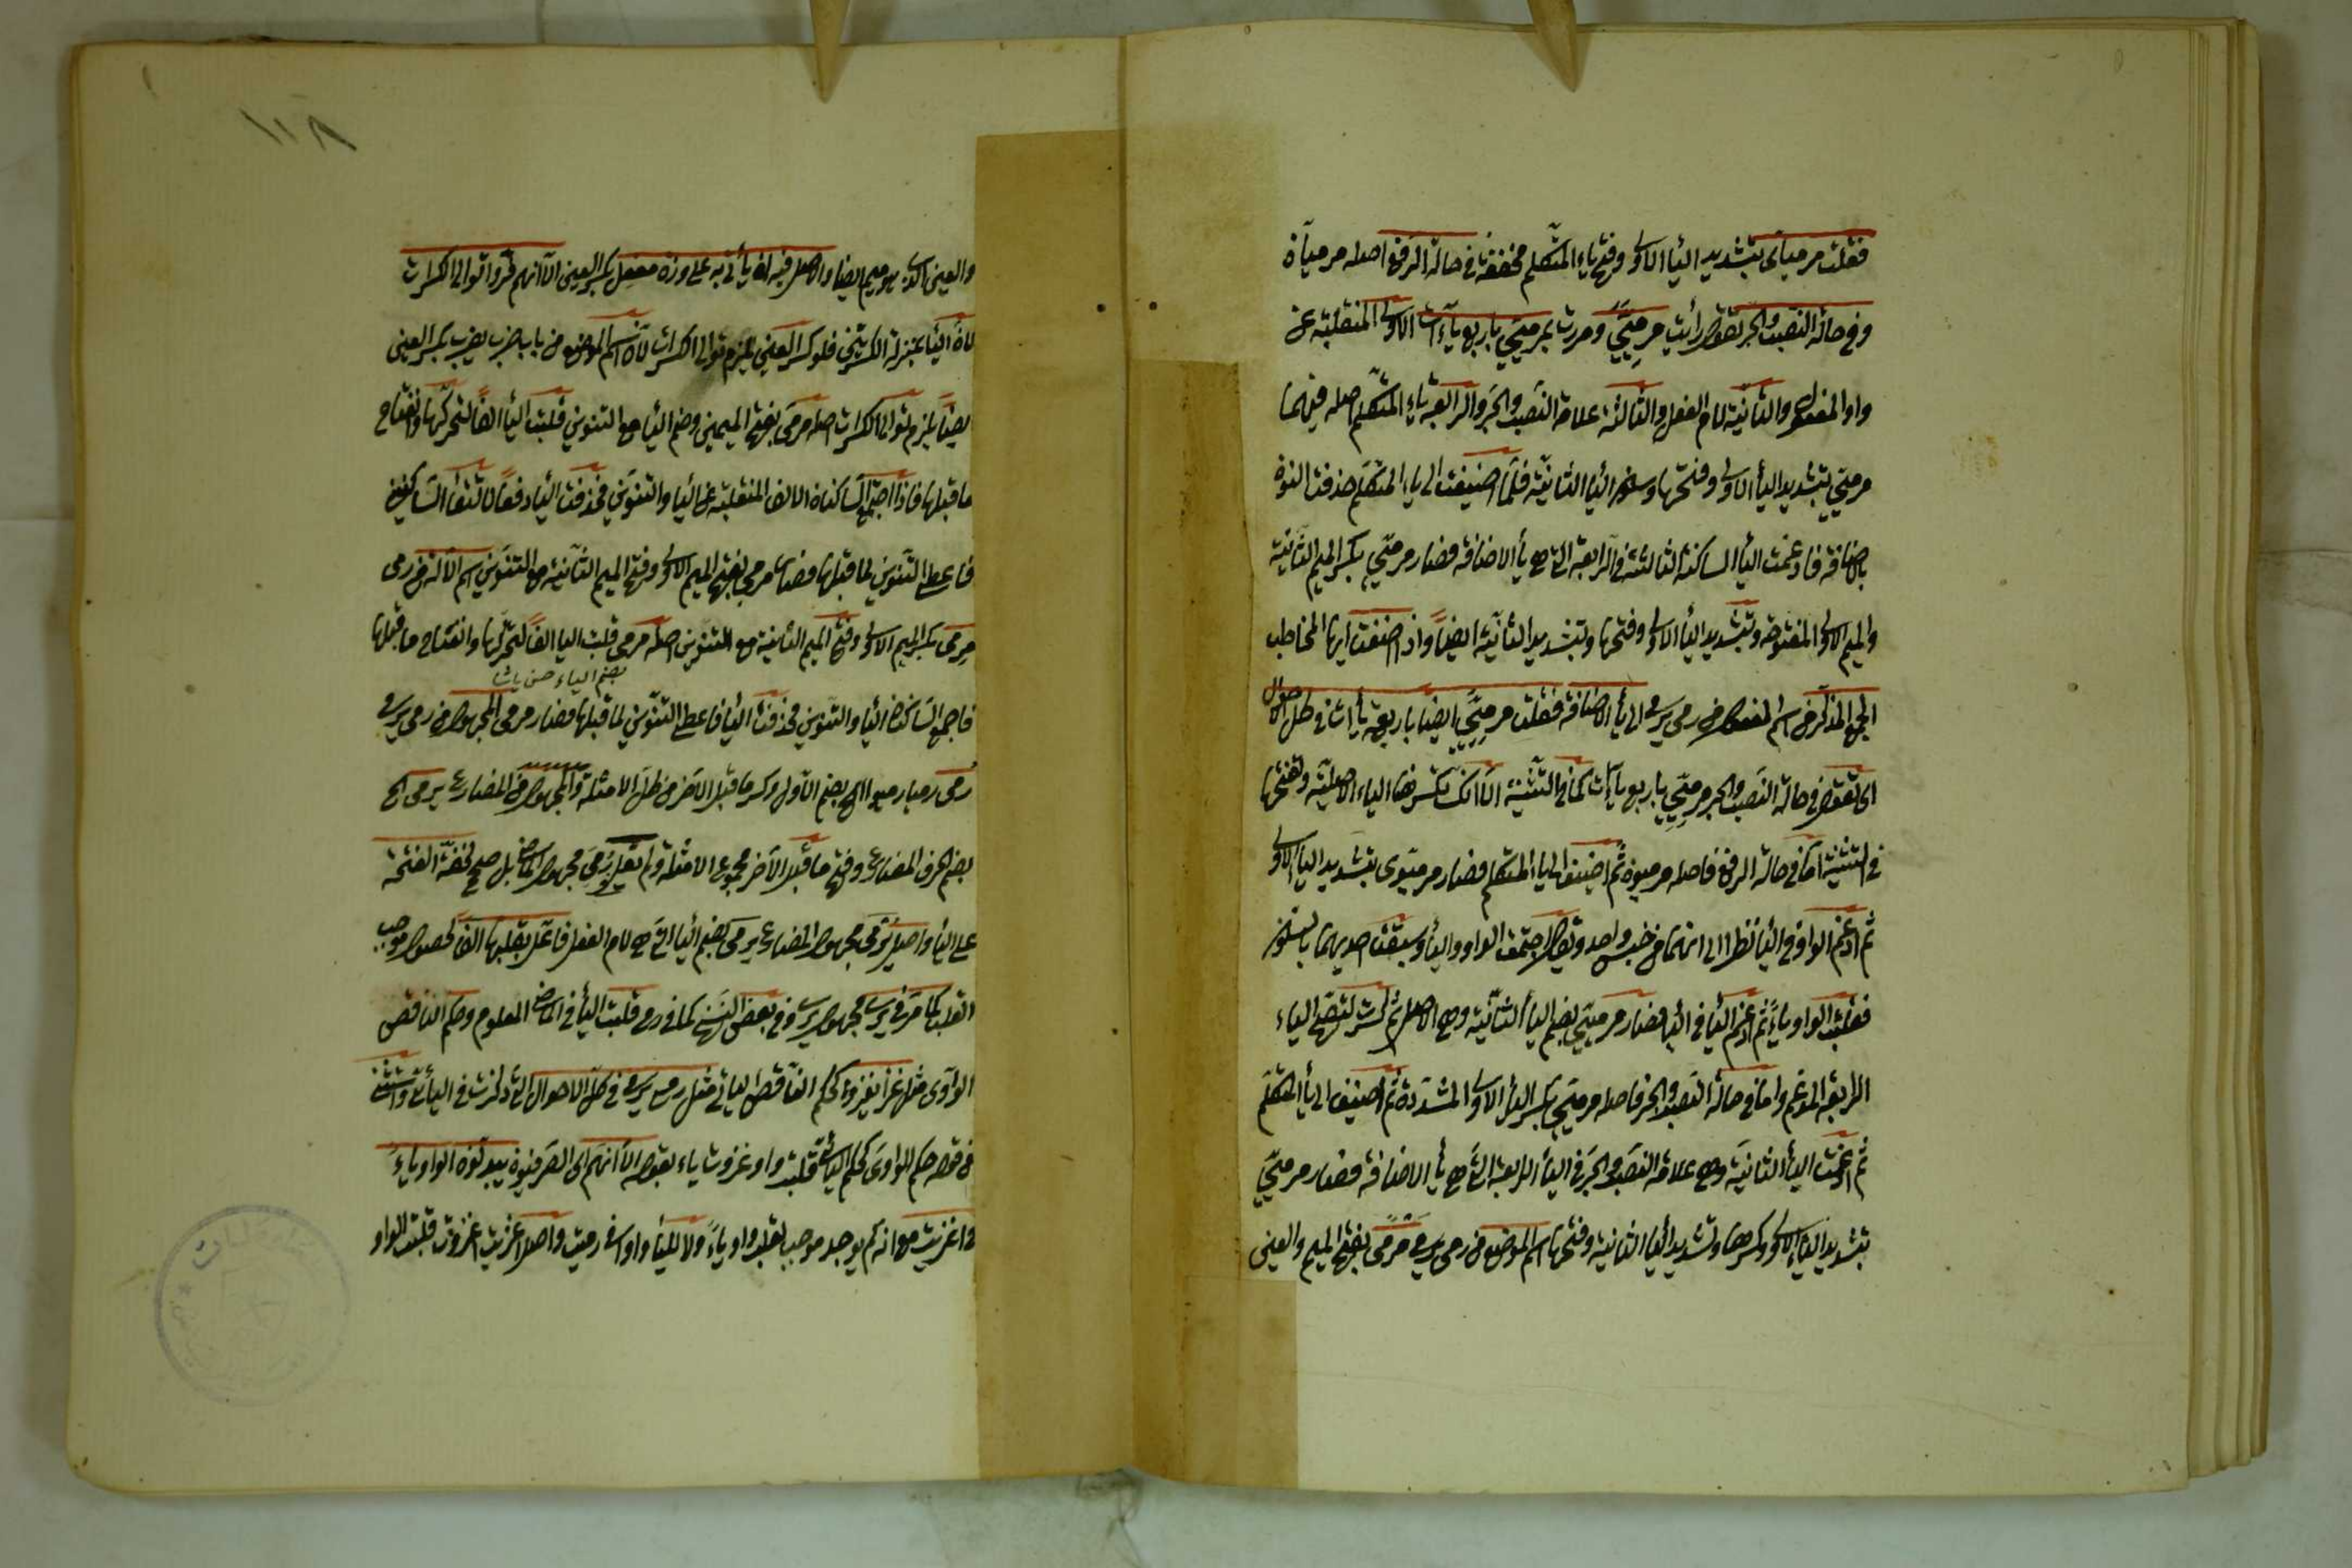 فقلت مرمياى بتشديد اليا الاولى وفتح ياء المتكلم مخففة فى حالة الرفع اصله مرميان
وفى حالة النصب والجر تقول رأيت مرميّيّ ومررت بمرميّيّ باربع ياآت الاولى المنقلبة عن
واو المفعول والثانية لام الفعل والثالثة علامة النصب والجر والرابعة ياء المتكلم اصله فيهما
مرميين بتشديد اليأ الاولى وفتحها وسكون اليا الثانية فلما اضيفت الى ياء المتكلم حذفت النون
بالاضافة فادغمت اليأ الساكنة الثالثة فى الرابعة التى هى يأ الاضافة فصار مرميّيّ بكسر الميم الثانية
والميم الاولى المفتوحة وبتشديد اليأ الاولى وفتحها وتشديد الثانية ايضًا واذا اضفت ايها المخاطب
الجمع المذكر من اسم المفعول من رمى يرمى الى يأ الاضافة فقلت مرميّيّ ايضا باربعة يأات فى كل الاحوال
اى تقول فى حالة النصب والجر مرميّيّ باربع ياآت كما فى التثنية الا انك تكسر هنا الياء الاصلية وتفتحها
فى التثنية اما فى حالة الرفع فاصله مرميون ثم اضيف الى ياء المتكلم فصار مرميّوى بتشديد اليا الاولى
ثم ادغم الواو فى اليأ نظرا الى انهما من جنس واحد وتقول اجتمعت الواو واليأ وسبقت احديهما بالسكون
فقلبت الواو ياءً ثم ادغم اليأ فى اليا فصار مرميّيّ بضم اليأ الثانية وهى الاصل ثم كسرت لتصح الياء
الرابعة المدغم واما فى حالة النصب والجر فاصله مرميين بكسر اليأ الاولى المشددة ثم اضيف الى يأ المتكلم
ثم ادغمت اليأ الثانية وهى علامة النصب والجر فى اليأ الرابعة التى هى يأ الاضافة فصار مرميّيّ
بتشديد الياء الاولى وكسرها وتشديد اليأ الثانية وفتحها اسم الموضع من رمى يرمى مرمًى بفتح الميم والعين
والعين الذى هو ميم ايضا والاصل فيه ان يأتى به على وزن مفعل بكسر العين الا انهم فروا توالى الكسرات
لان اليأ بمنزلة الكسرتين فلو كسر العين يلزم توالى الكسرات لان اسم الموضع من باب ضرب يضرب بكسر العين
ايضًا يلزم توالى الكسرات اصله مرمى بفتح الميمين وضم اليأ مع التنوين قلبت اليأ الفًا لتحركها وانفتاح
ما قبلها فاذا اجتمع الساكنان الالف المنقلبة عن اليأ والتنوين فحذفت اليأ دفعًا لالتقأ الساكنين
فاعطى التنوين لما قبلها فصار مرمى بفتح الميم الاولى وفتح الميم الثانية مع التنوين اسم الآلة من رمى
مرمى بكسر الميم الاولى وفتح الميم الثانية مع التنوين اصله مرمى قلبت اليا الفًا لتحركها وانفتاح ما قبلها
بضم الياء حسن پاشا
فاجتمع الساكنان اليأ والتنوين فحذفت اليأ فاعطى التنوين لما قبلها فصار مرمى المجهول من رمى يرمى
رُمى رميا رميوا الخ بضم الاول وكسر ما قبل الآخر من كل الامثلة والمجهول من المضارع يرمى الخ
بضم الحرف المضارع وفتح ما قبل الآخر مجموع الامثلة ولم يعل رُمى مجهول الماضى بل صح لخفة الفتحة
على اليأ واصل يُرمى مجهول المضارع يرمى بضم اليأ التى هى لام الفعل فاعل بقلبها الفًا لحصول موجب
القلب كما مر فى يرمى مجهول يرمى وفى بعض النسخ كما فى رمى قلبت اليأ فى الماضى المعلوم وحكم الناقص
الواوى مثل غزا يغزو كحكم الناقص اليائى مثل رمى يرمى فى كل الاحوال التى ذكرت فى اليأئى واستثنى
من قوله حكم الواوى كحكم اليائى قلبت واو غزوت ياء بقوله الا انهم اى الصرفيون يبدلون الواو ياءً
فى اغزيت مع انه لم يوجد موجب لقلب واو ياءً ولا لليأ واوا فى رميت واصل اغزيت اغزوت قلبت الواو
١١٨